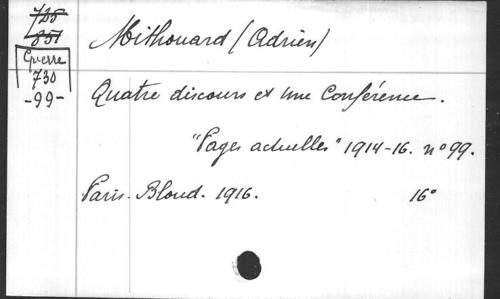 725
851
Guerre
730
-99-
Mithouard (Adrien)
Quatre discours et une Conférence.
"Pages actuelles" 1914-16. nº 99.
Paris. Bloud. 1916. 16º